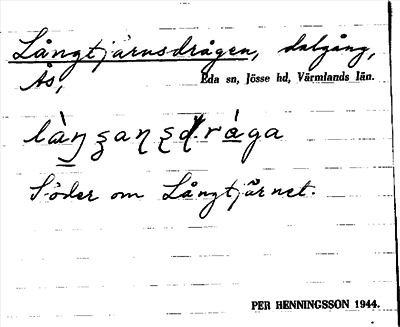 Långtjärnsdrågen, dalgång,
Ås, Eda sn, Jösse hd, Värmlands län.
Söder om Långtjärnet.
PER HENNINGSSON 1944.